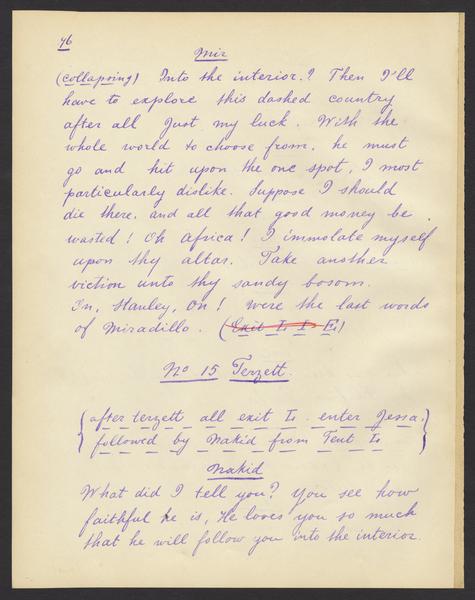 46
Mir
(collapsing) Into the interior? Then I'll
have to explore this dashed country
after all Just my luck. With the
whole world to choose from, he must
go and hit upon the one spot, I most
particularly dislike. Suppose I should
die there, and all that good money be
wasted! Oh Africa! I immolate myself
upon thy altar. Take another
viction unto thy sandy bosom.
On, Stanley, on! were the last words
of Miradillo. (Exit L I E)
No 15 Terzett.
{after terzett all exit L. enter Jessa,
followed by Nakid from Tent L}
Nakid
What did I tell you? You see how
faithful he is, He loves you so much
that he will follow you into the interior.